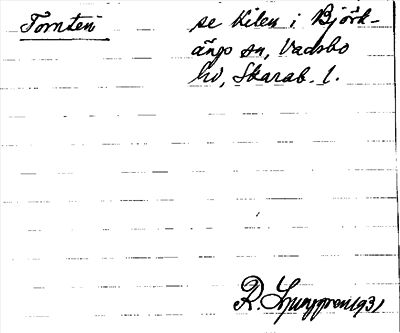 Tomten se Kilen i Björk-
ängs sn, Vadsbo
hd, Skarab. l.
R. Ljunggren 1931